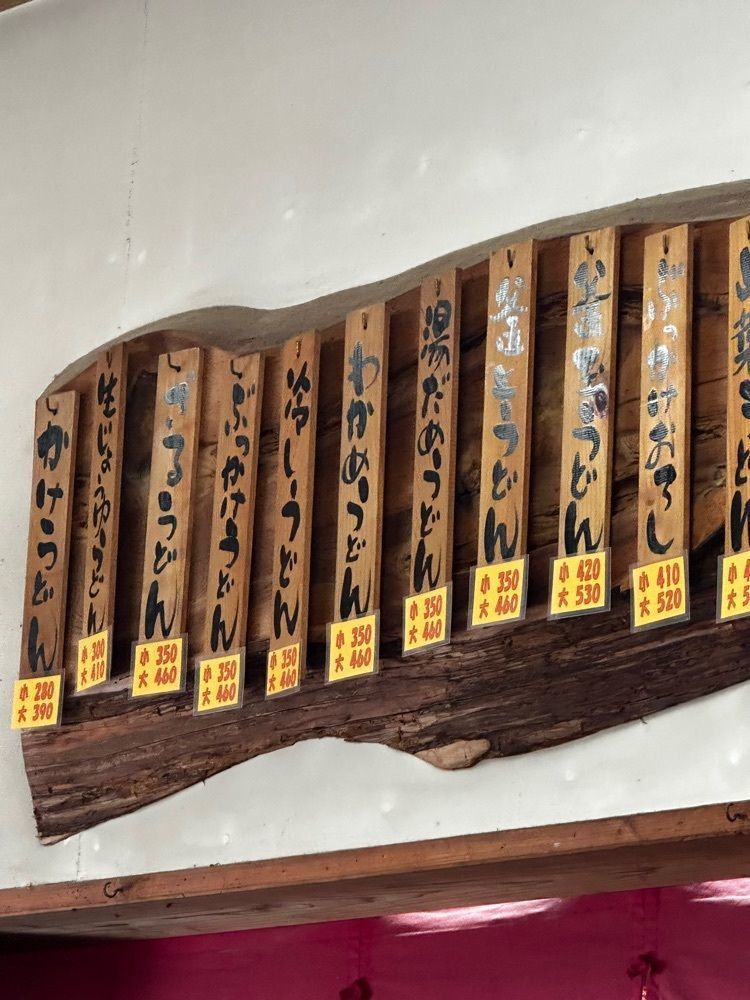 かけうどん
小 280
大 390
生じょうゆうどん
小 300
大 410
ざるうどん
小 350
大 460
ぶっかけうどん
小 350
大 460
冷しうどん
小 350
大 460
わかめうどん
小 350
大 460
湯だめうどん
小 350
大 460
うどん
小 350
大 460
うどん
小 420
大 530
ぶっかけおろし
小 410
大 520
山菜うどん
小 4
大 5